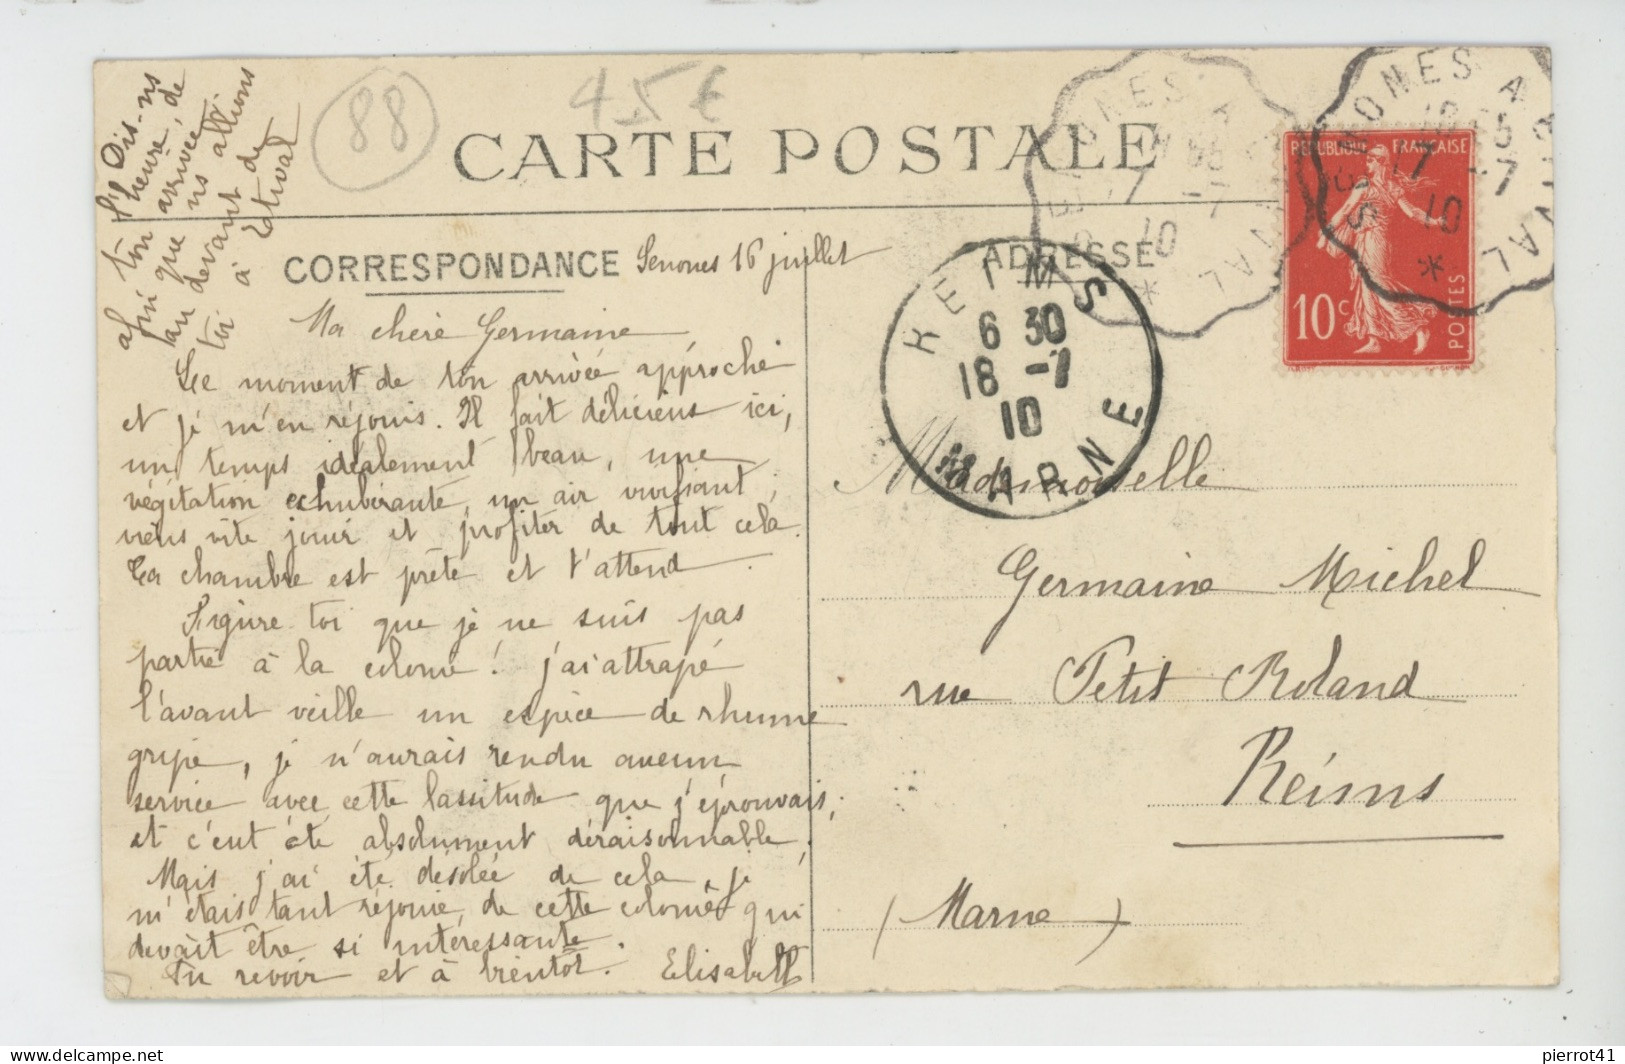 88
45€
CARTE POSTALE
Dis-ns
l'heure, de
ton arrivée
afin que ns allions
au devant de
toi à Etival
CORRESPONDANCE
Senones 16 juillet
Ma chère Germaine
Le moment de ton arrivée approche
et je m'en réjouis. Il fait délicieux ici,
un temps idéalement beau, une
végétation exhubérante, un air vivifiant,
viens vite jouir et profiter de tout cela.
Ta chambre est prête et t'attend.
Figure toi que je ne suis pas
partie à la colonie! j'ai attrapé
l'avant veille un espèce de rhume
grippe, je n'aurais rendu aucun
service avec cette lassitude que j'éprouvais,
et c'eut été absolument déraisonnable.
Mais j'ai été désolée de cela, je
m'étais tant réjouie, de cette colonie qui
devait être si intéressante.
Au revoir et à bientôt. Elisabeth
ADRESSE
REIMS
6 30
18 -7
10
MARNE
SENONES A ETIVAL
17 -7
10
SENONES A ETIVAL
17 -7
10
REPUBLIQUE FRANÇAISE
10c
POSTES
Mademoiselle
Germaine Michel
rue Petit Roland
Reims
(Marne)
delcampe.net
pierrot41